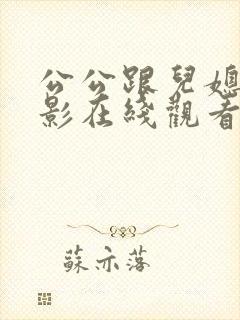 公公跟兒媳
影在綫觀看
蘇亦落